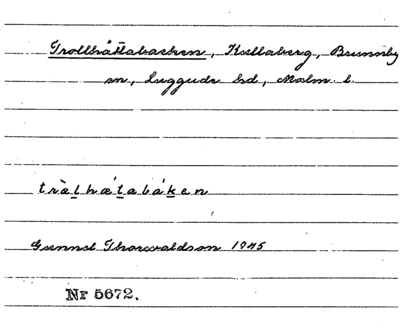 Trollhättabacken, Kullaberg, Brunnby
sn, Luggude hd, Malm. l.
tràlhǽtabákен
Gunnel Thorvaldson 1945
Nr 5672.